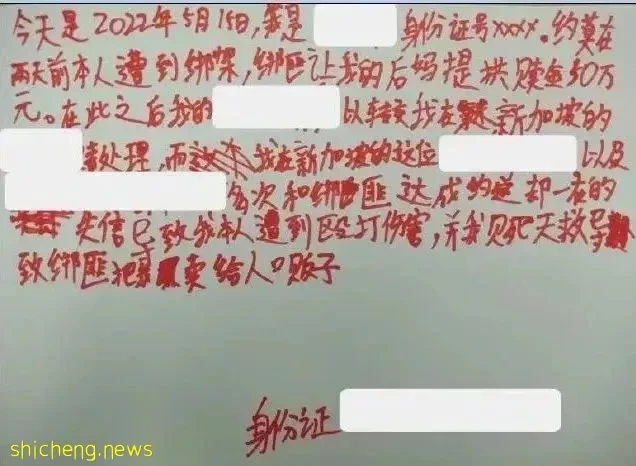 今天是2022年5月15日，我是 身份证号xxxx。约莫在
两天前本人遭到绑架，绑匪让我的后妈提供赎金50万
元。在此之后我的 以转交我在 新加坡的
处理，而 我在新加坡的这位 以及
多次和绑匪达成约定却一在的
失信已致我本人遭到殴打伤害，并我见死不救导
致绑匪把 卖给人口贩子
身份证
shicheng.news